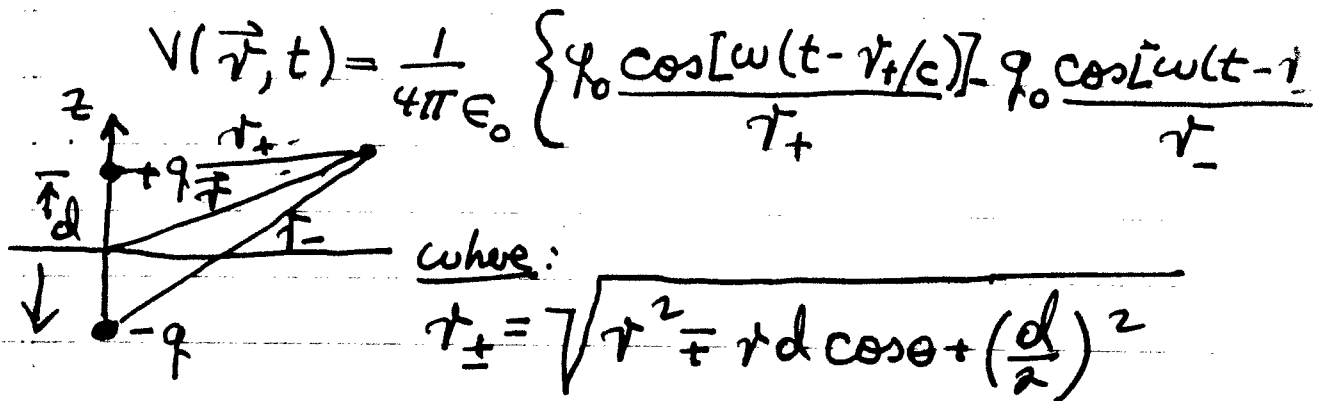 V(r⃗, t) = 1/(4πε₀) { q₀ cos[ω(t - r₊/c)]/r₊ - q₀ cos[ω(t - r₋
r₋
z
r₊
+q
r⃗
d
r₋
where:
r± = √(r² ∓ r d cosθ + (d/2)²)
-q